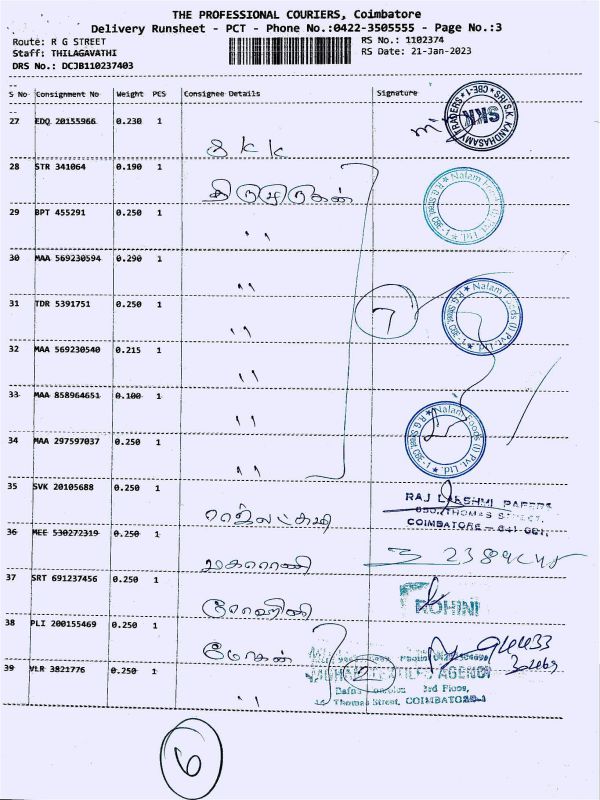 THE PROFESSIONAL COURIERS, Coimbatore
Delivery Runsheet - PCT - Phone No.:0422-3505555 - Page No.:3
Route: R G STREET RS No.: 1102374
Staff: THILAGAVATHI RS Date: 21-Jan-2023
DRS No.: DCJB110237403
S No Consignment No Weight PCS Consignee Details Signature
27 EDQ 20155966 0.230 1
S K K
SRI S.K. KANDHASAMY TRADERS ★ CBE-1 ★
SKK
28 STR 341064 0.190 1
திருமுருகன்
★ Nalam Foods (I) Pvt. Ltd. ★ R G Street, CBE-1
29 BPT 455291 0.250 1
" "
30 MAA 569230594 0.290 1
" "
7
★ Nalam Foods (I) Pvt. Ltd. ★ R G Street, CBE-1
31 TDR 5391751 0.250 1
" "
32 MAA 569230540 0.215 1
" "
33 MAA 858964651 0.100 1
" "
★ Nalam Foods (I) Pvt. Ltd. ★ R G Street, CBE-1
34 MAA 297597037 0.250 1
" "
35 SVK 20105688 0.250 1
ராஜலட்சுமி
RAJ LAKSHMI PAPERS
THOMAS STREET,
COIMBATORE - 641 001.
36 MEE 530272319 0.250 1
மகாராணி
37 SRT 691237456 0.250 1
ரோஹினி
ROHINI
38 PLI 200155469 0.250 1
மோகன்
39 VLR 3821776 0.250 1
" "
2
AGENCY
3rd Floor,
Thomas Street, COIMBATORE-1
6